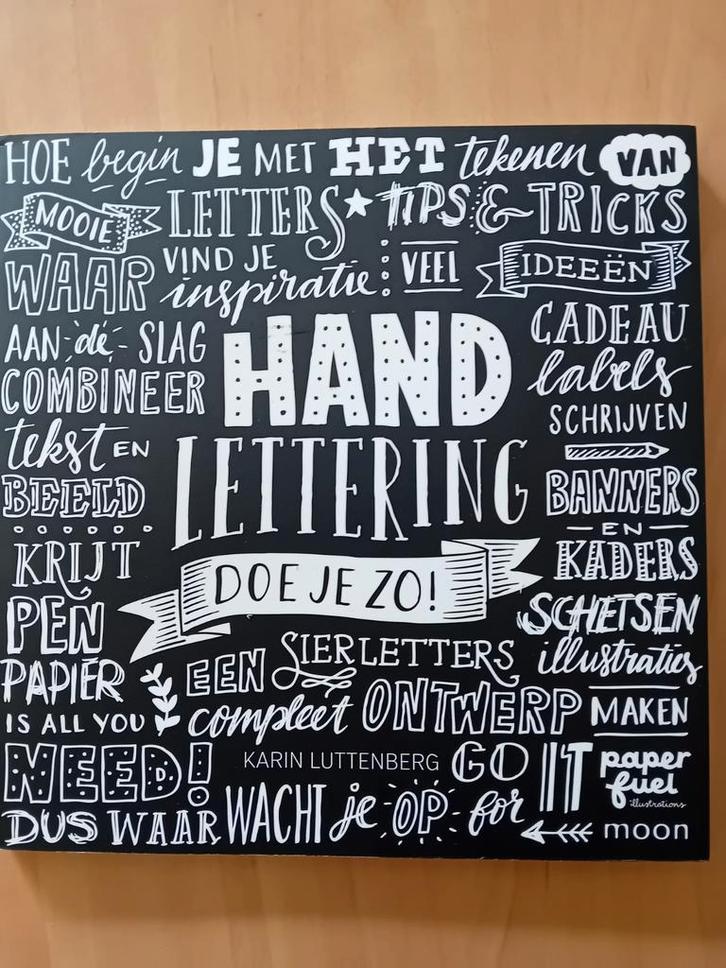 HOE begin JE MET HET tekenen VAN
MOOIE LETTERS TIPS & TRICKS
WAAR VIND JE inspiratie VEEL IDEEËN
AAN de SLAG
COMBINEER
tekst EN
BEELD
KRIJT
PEN
PAPIER
IS ALL YOU
NEED!
HAND
LETTERING
DOE JE ZO!
CADEAU
labels
SCHRIJVEN
BANNERS
EN
KADERS
SCHETSEN
illustraties
EEN SIERLETTERS
compleet ONTWERP MAKEN
KARIN LUTTENBERG GO IT paper
fuel
illustrations
DUS WAAR WACHT je OP for moon